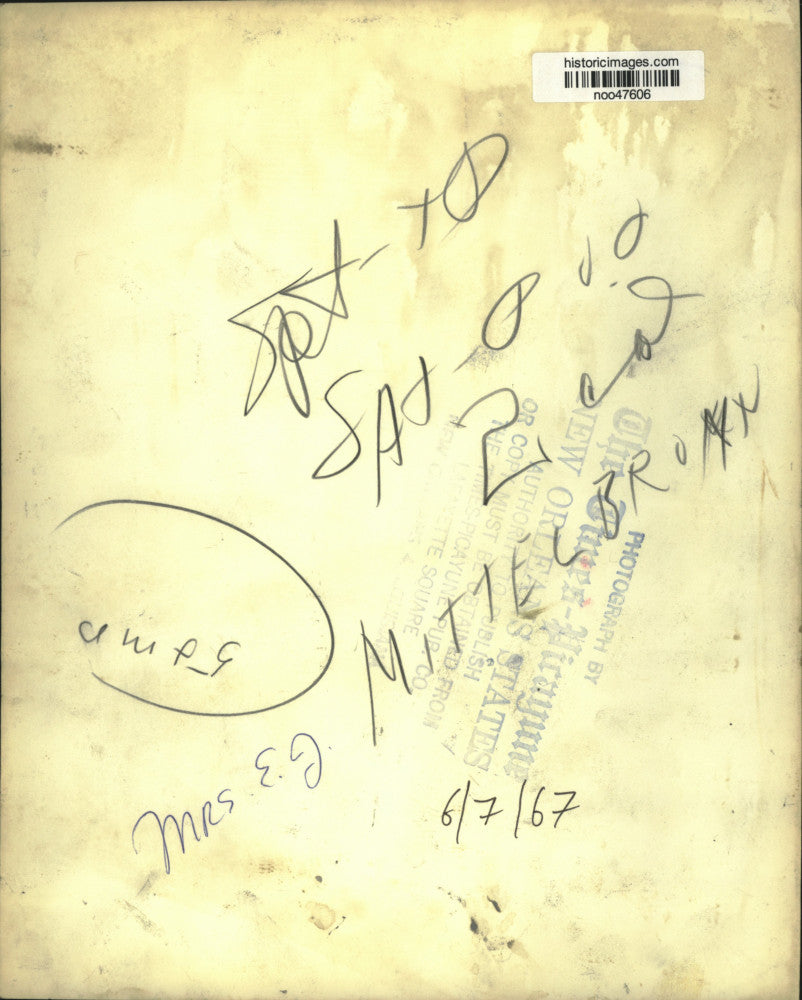 historicimages.com
noo47606
Spt - TO
SAT - P
2 col
MITTELBRONN
PHOTOGRAPH BY
The Times-Picayune
NEW ORLEANS STATES
AUTHORITY TO PUBLISH
OR COPY MUST BE OBTAINED FROM
THE TIMES-PICAYUNE PUB. CO.
LAFAYETTE SQUARE
NEW ORLEANS
MRS E.G.
6/7/67